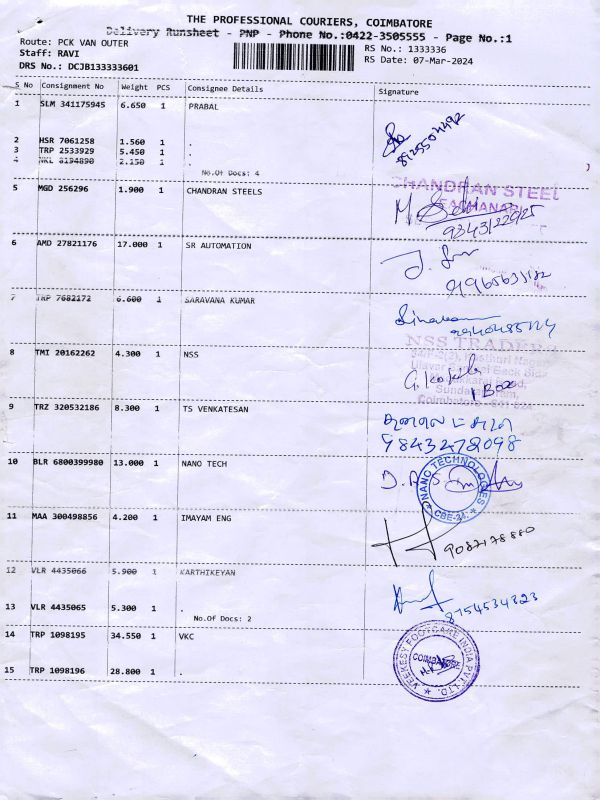 THE PROFESSIONAL COURIERS, COIMBATORE
Delivery Runsheet - PNP - Phone No.:0422-3505555 - Page No.:1
Route: PCK VAN OUTER
RS No.: 1333336
Staff: RAVI
RS Date: 07-Mar-2024
DRS No.: DCJB133333601
S No Consignment No Weight PCS Consignee Details Signature
1 SLM 341175945 6.650 1 PRABAL
8925504492
2 HSR 7061258 1.560 1 .
3 TRP 2533929 5.450 1 .
4 NKL 8194890 2.150 1 .
No.Of Docs: 4
5 MGD 256296 1.900 1 CHANDRAN STEELS
CHANDRAN STEEL
EACHANARI
6 AMD 27821176 17.000 1 SR AUTOMATION
7 TRP 7682172 6.600 1 SARAVANA KUMAR
8 TMI 20162262 4.300 1 NSS
NSS TRADERS
1 Box
9 TRZ 320532186 8.300 1 TS VENKATESAN
9843472098
10 BLR 6800399980 13.000 1 NANO TECH
NANO TECHNOLOGIES
CBE-24.
11 MAA 300498856 4.200 1 IMAYAM ENG
9087178880
12 VLR 4435066 5.900 1 KARTHIKEYAN
8754534323
13 VLR 4435065 5.300 1 .
No.Of Docs: 2
14 TRP 1098195 34.550 1 VKC
VEEKESY FOOTCARE INDIA PVT. LTD.
COIMBATORE
15 TRP 1098196 28.800 1 .